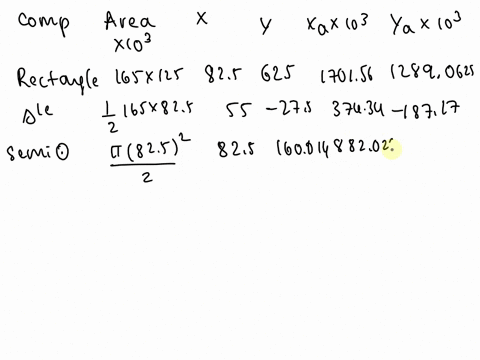 Comp Area X Y Xa×10³ Ya×10³
×10³
Rectangle 165×125 82.5 625 1701.56 1289.0625
Δle 1/2 165×82.5 55 -27.5 374.34 -187.17
Semi⊙ π(82.5)²/2 82.5 160.014 882.02